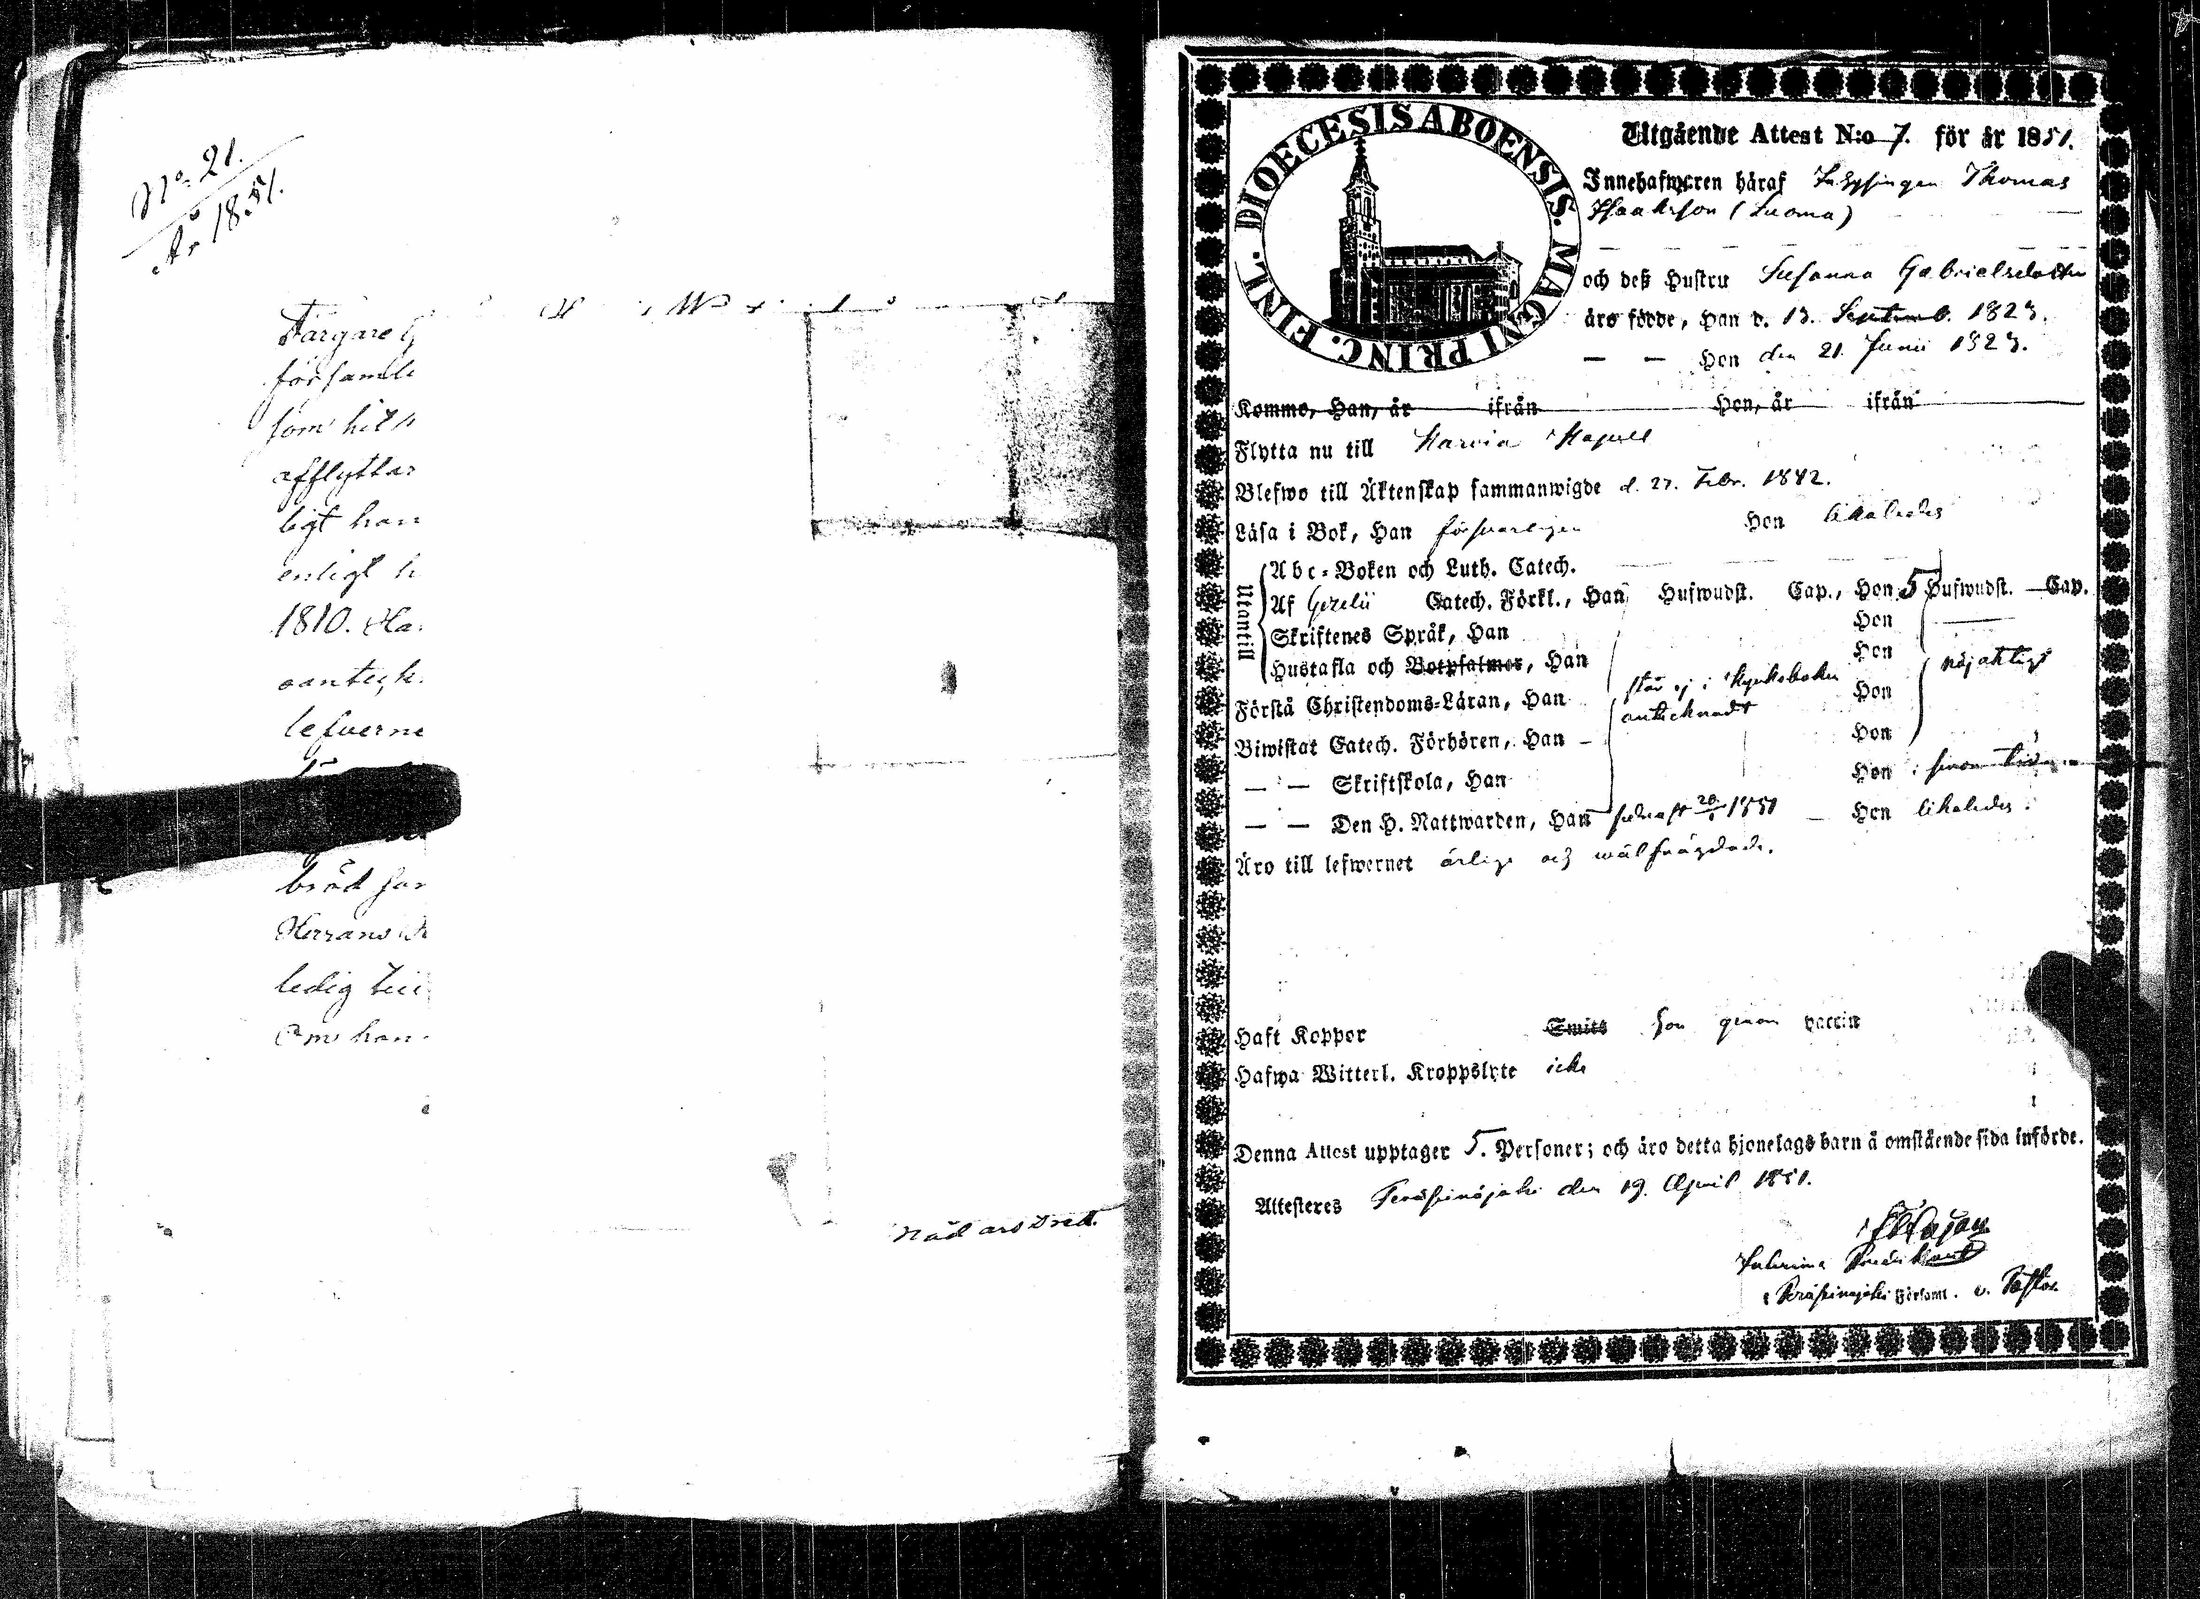 No. 21.
År 1851.
Färgare G
församli
som hit
afflyttar
ligt han
enligt h
1810. Ha
anteck
lefverne
bröd
Herrans
ledig till
Om han
Nåd års Pred.
DIOECESIS ABOENSIS. MAGNI PRINC. FINL.
Utgående Attest N:o 7. för år 1851.
Innehafwaren häraf Inhysingen Thomas
Isaaksson (Luoma)
och deß Hustru Susanna Gabrielsdotter
äro födde, Han d. 13. Septemb. 1823.
— — Hon den 21 Junii 1823.
Kommo, Han, år ifrån Hon, år ifrån
Flytta nu till Karvia Kapell
Blefwo till Äktenskap sammanwigde d. 27. Febr. 1842.
Läsa i Bok, Han försvarligen Hon likaledes
Utantill
Abc-Boken och Luth. Catech.
Af Gezelii Catech. Förkl., Han Hufwudst. Cap., Hon 5 Hufwudst. — Cap.
Skriftenes Språk, Han Hon
Hustafla och Botpsalmer, Han Hon
Förstå Christendoms-Läran, Han står ej i Kyrkoboken antecknadt Hon nöjaktigt
Biwistat Catech. Förhören, Han — Hon
— — Skriftskola, Han Hon i sinom tid
— — Den H. Nattwarden, Han 1851 — Hon likaledes.
Äro till lefwernet ärlige och wälfrägdade.
Haft Koppor Smitt hon genom vaccin
Hafwa Witterl. Kroppslyte icke
Denna Attest upptager 5. Personer; och äro detta hjonelags barn å omstående sida införde.
Attesteres Peräseinäjoki den 19. April 1851.
Predikant
i Peräseinäjoki Församl. v. Pastor